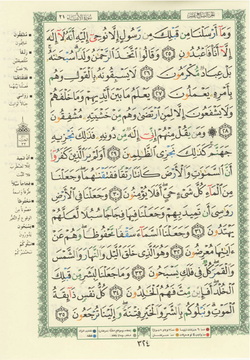 وَمَآ أَرْسَلْنَا مِن قَبْلِكَ مِن رَّسُولٍ إِلَّا نُوحِىٓ إِلَيْهِ أَنَّهُۥ لَآ إِلَٰهَ
إِلَّآ أَنَا۠ فَٱعْبُدُونِ ﴿٢٥﴾ وَقَالُوا۟ ٱتَّخَذَ ٱلرَّحْمَٰنُ وَلَدًا سُبْحَٰنَهُۥ
بَلْ عِبَادٌ مُّكْرَمُونَ ﴿٢٦﴾ لَا يَسْبِقُونَهُۥ بِٱلْقَوْلِ وَهُم
بِأَمْرِهِۦ يَعْمَلُونَ ﴿٢٧﴾ يَعْلَمُ مَا بَيْنَ أَيْدِيهِمْ وَمَا خَلْفَهُمْ
وَلَا يَشْفَعُونَ إِلَّا لِمَنِ ٱرْتَضَىٰ وَهُم مِّنْ خَشْيَتِهِۦ مُشْفِقُونَ
﴿٢٨﴾ وَمَن يَقُلْ مِنْهُمْ إِنِّىٓ إِلَٰهٌ مِّن دُونِهِۦ فَذَٰلِكَ نَجْزِيهِ
جَهَنَّمَ كَذَٰلِكَ نَجْزِى ٱلظَّٰلِمِينَ ﴿٢٩﴾ أَوَلَمْ يَرَ ٱلَّذِينَ كَفَرُوٓا۟
أَنَّ ٱلسَّمَٰوَٰتِ وَٱلْأَرْضَ كَانَتَا رَتْقًا فَفَتَقْنَٰهُمَا وَجَعَلْنَا
مِنَ ٱلْمَآءِ كُلَّ شَىْءٍ حَىٍّ أَفَلَا يُؤْمِنُونَ ﴿٣٠﴾ وَجَعَلْنَا فِى ٱلْأَرْضِ
رَوَٰسِىَ أَن تَمِيدَ بِهِمْ وَجَعَلْنَا فِيهَا فِجَاجًا سُبُلًا لَّعَلَّهُمْ
يَهْتَدُونَ ﴿٣١﴾ وَجَعَلْنَا ٱلسَّمَآءَ سَقْفًا مَّحْفُوظًا وَهُمْ عَنْ
ءَايَٰتِهَا مُعْرِضُونَ ﴿٣٢﴾ وَهُوَ ٱلَّذِى خَلَقَ ٱلَّيْلَ وَٱلنَّهَارَ وَٱلشَّمْسَ
وَٱلْقَمَرَ كُلٌّ فِى فَلَكٍ يَسْبَحُونَ ﴿٣٣﴾ وَمَا جَعَلْنَا لِبَشَرٍ مِّن قَبْلِكَ
ٱلْخُلْدَ أَفَإِي۟ن مِّتَّ فَهُمُ ٱلْخَٰلِدُونَ ﴿٣٤﴾ كُلُّ نَفْسٍ ذَآئِقَةُ
ٱلْمَوْتِ وَنَبْلُوكُم بِٱلشَّرِّ وَٱلْخَيْرِ فِتْنَةً وَإِلَيْنَا تُرْجَعُونَ ﴿٣٥﴾
٣٢٤